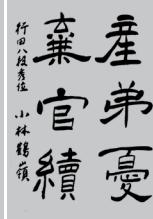 産弟憂
棄官續
行田八段秀位 小林鶴嶺